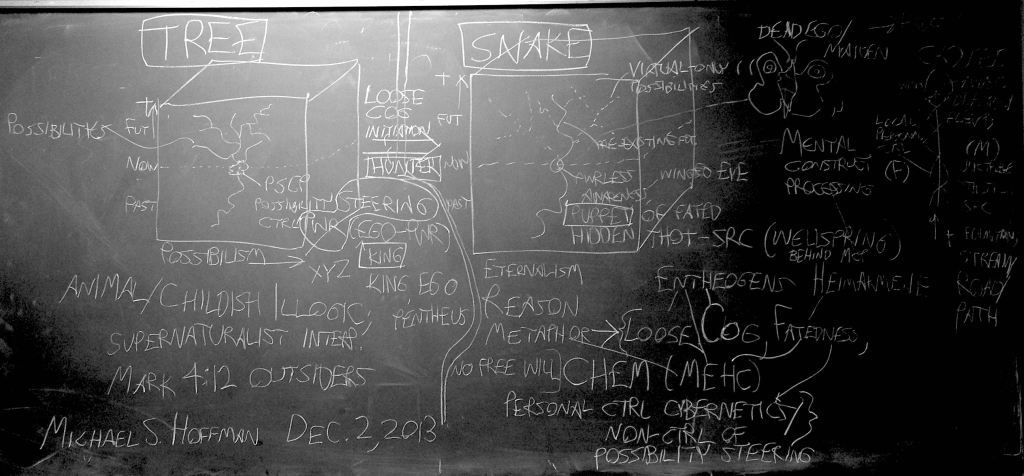 TREE
+
POSSIBILITIES
FUT
NOW
PAST
PSCP
POSSIBILITY
CTRL
STEERING
PWR
(EGO-PWR)
POSSIBILISM
XYZ
LOOSE
COG
INITIATION
HUNTER
KING
KING EGO
PENTHEUS
ANIMAL/CHILDISH ILLOGIC;
SUPERNATURALIST INTERP.
MARK 4:12 OUTSIDERS
MICHAEL S. HOFFMAN DEC. 2, 2013
SNAKE
+
FUT
NOW
PAST
VIRTUAL-ONLY
POSSIBILITIES
PRE-EXISTING FUT
PWRLESS
AWARENESS
WINGED EVE
PUPPET OF FATED
HIDDEN THOT-SRC (WELLSPRING)
BEHIND MCP
ETERNALISM
REASON
METAPHOR
NO FREE WILL
ENTHEOGENS HEIMARMENE
LOOSE COG, FATEDNESS,
CHEM (MEHC)
PERSONAL CTRL CYBERNETICS/
NON-CTRL OF
POSSIBILITY STEERING
DEAD EGO/
MAIDEN
MENTAL
CONSTRUCT (F)
PROCESSING
LOCAL
(M)
STREAM/
ROAD/
PATH